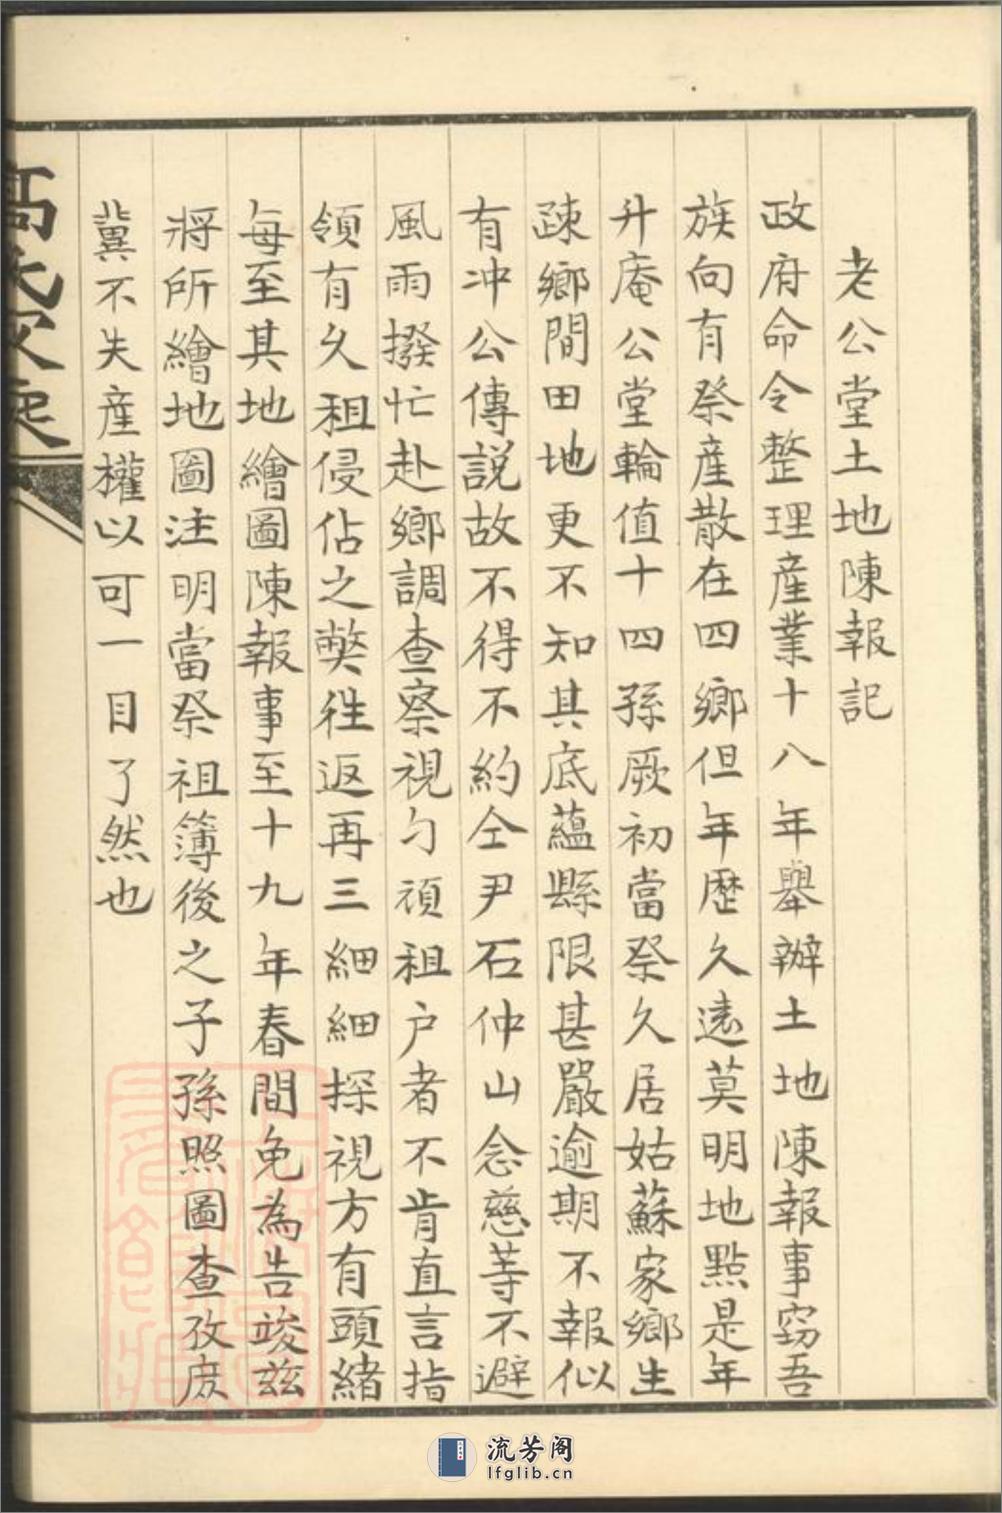 老公堂土地陳報記
政府命令整理產業十八年舉辦土地陳報事竊吾
族向有祭產散在四鄉但年歷久遠莫明地點是年
升庵公堂輪值十四孫厥初當祭久居姑蘇家鄉生
疎鄉間田地更不知其底蘊縣限甚嚴逾期不報似
有冲公傳說故不得不約仝尹石仲山念慈等不避
風雨撥忙赴鄉調查察視乃頑租户者不肯直言指
領有久租侵佔之獘徃返再三細細探視方有頭緒
每至其地繪圖陳報事至十九年春間免為告竣茲
將所繪地圖注明當祭祖簿後之子孫照圖查攷庻
冀不失產權以可一目了然也
高氏家
流芳阁
lfglib.cn